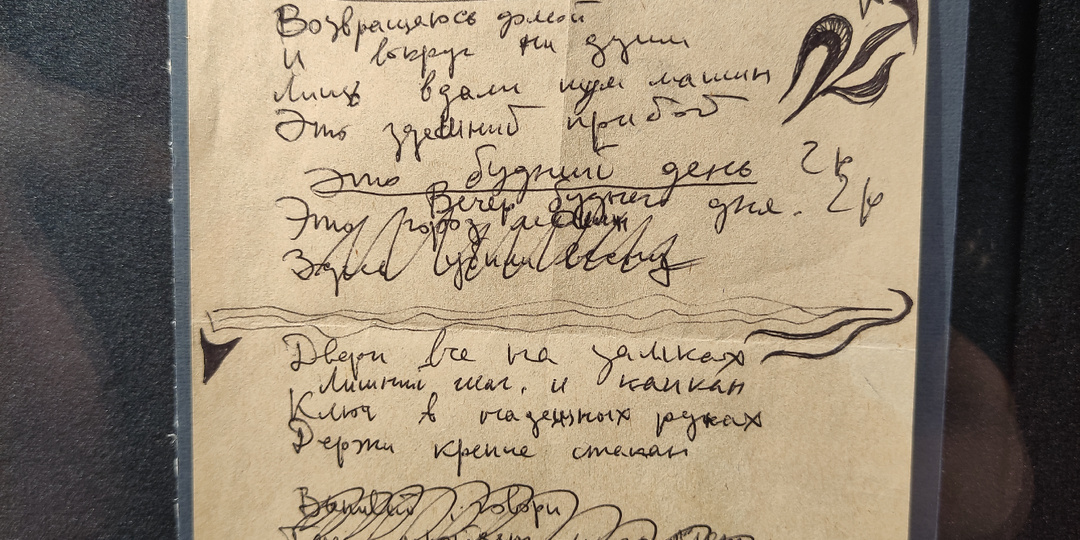 Возвращаюсь домой
И вокруг ни души
Лишь вдали шум машин
Это здешний прибой
Это будний день 2р
Вечер буднего дня. 2р
Это город
Двери все на замках
Лишний шаг, и капкан
Ключ в надежных руках
Держи крепче стакан
говори